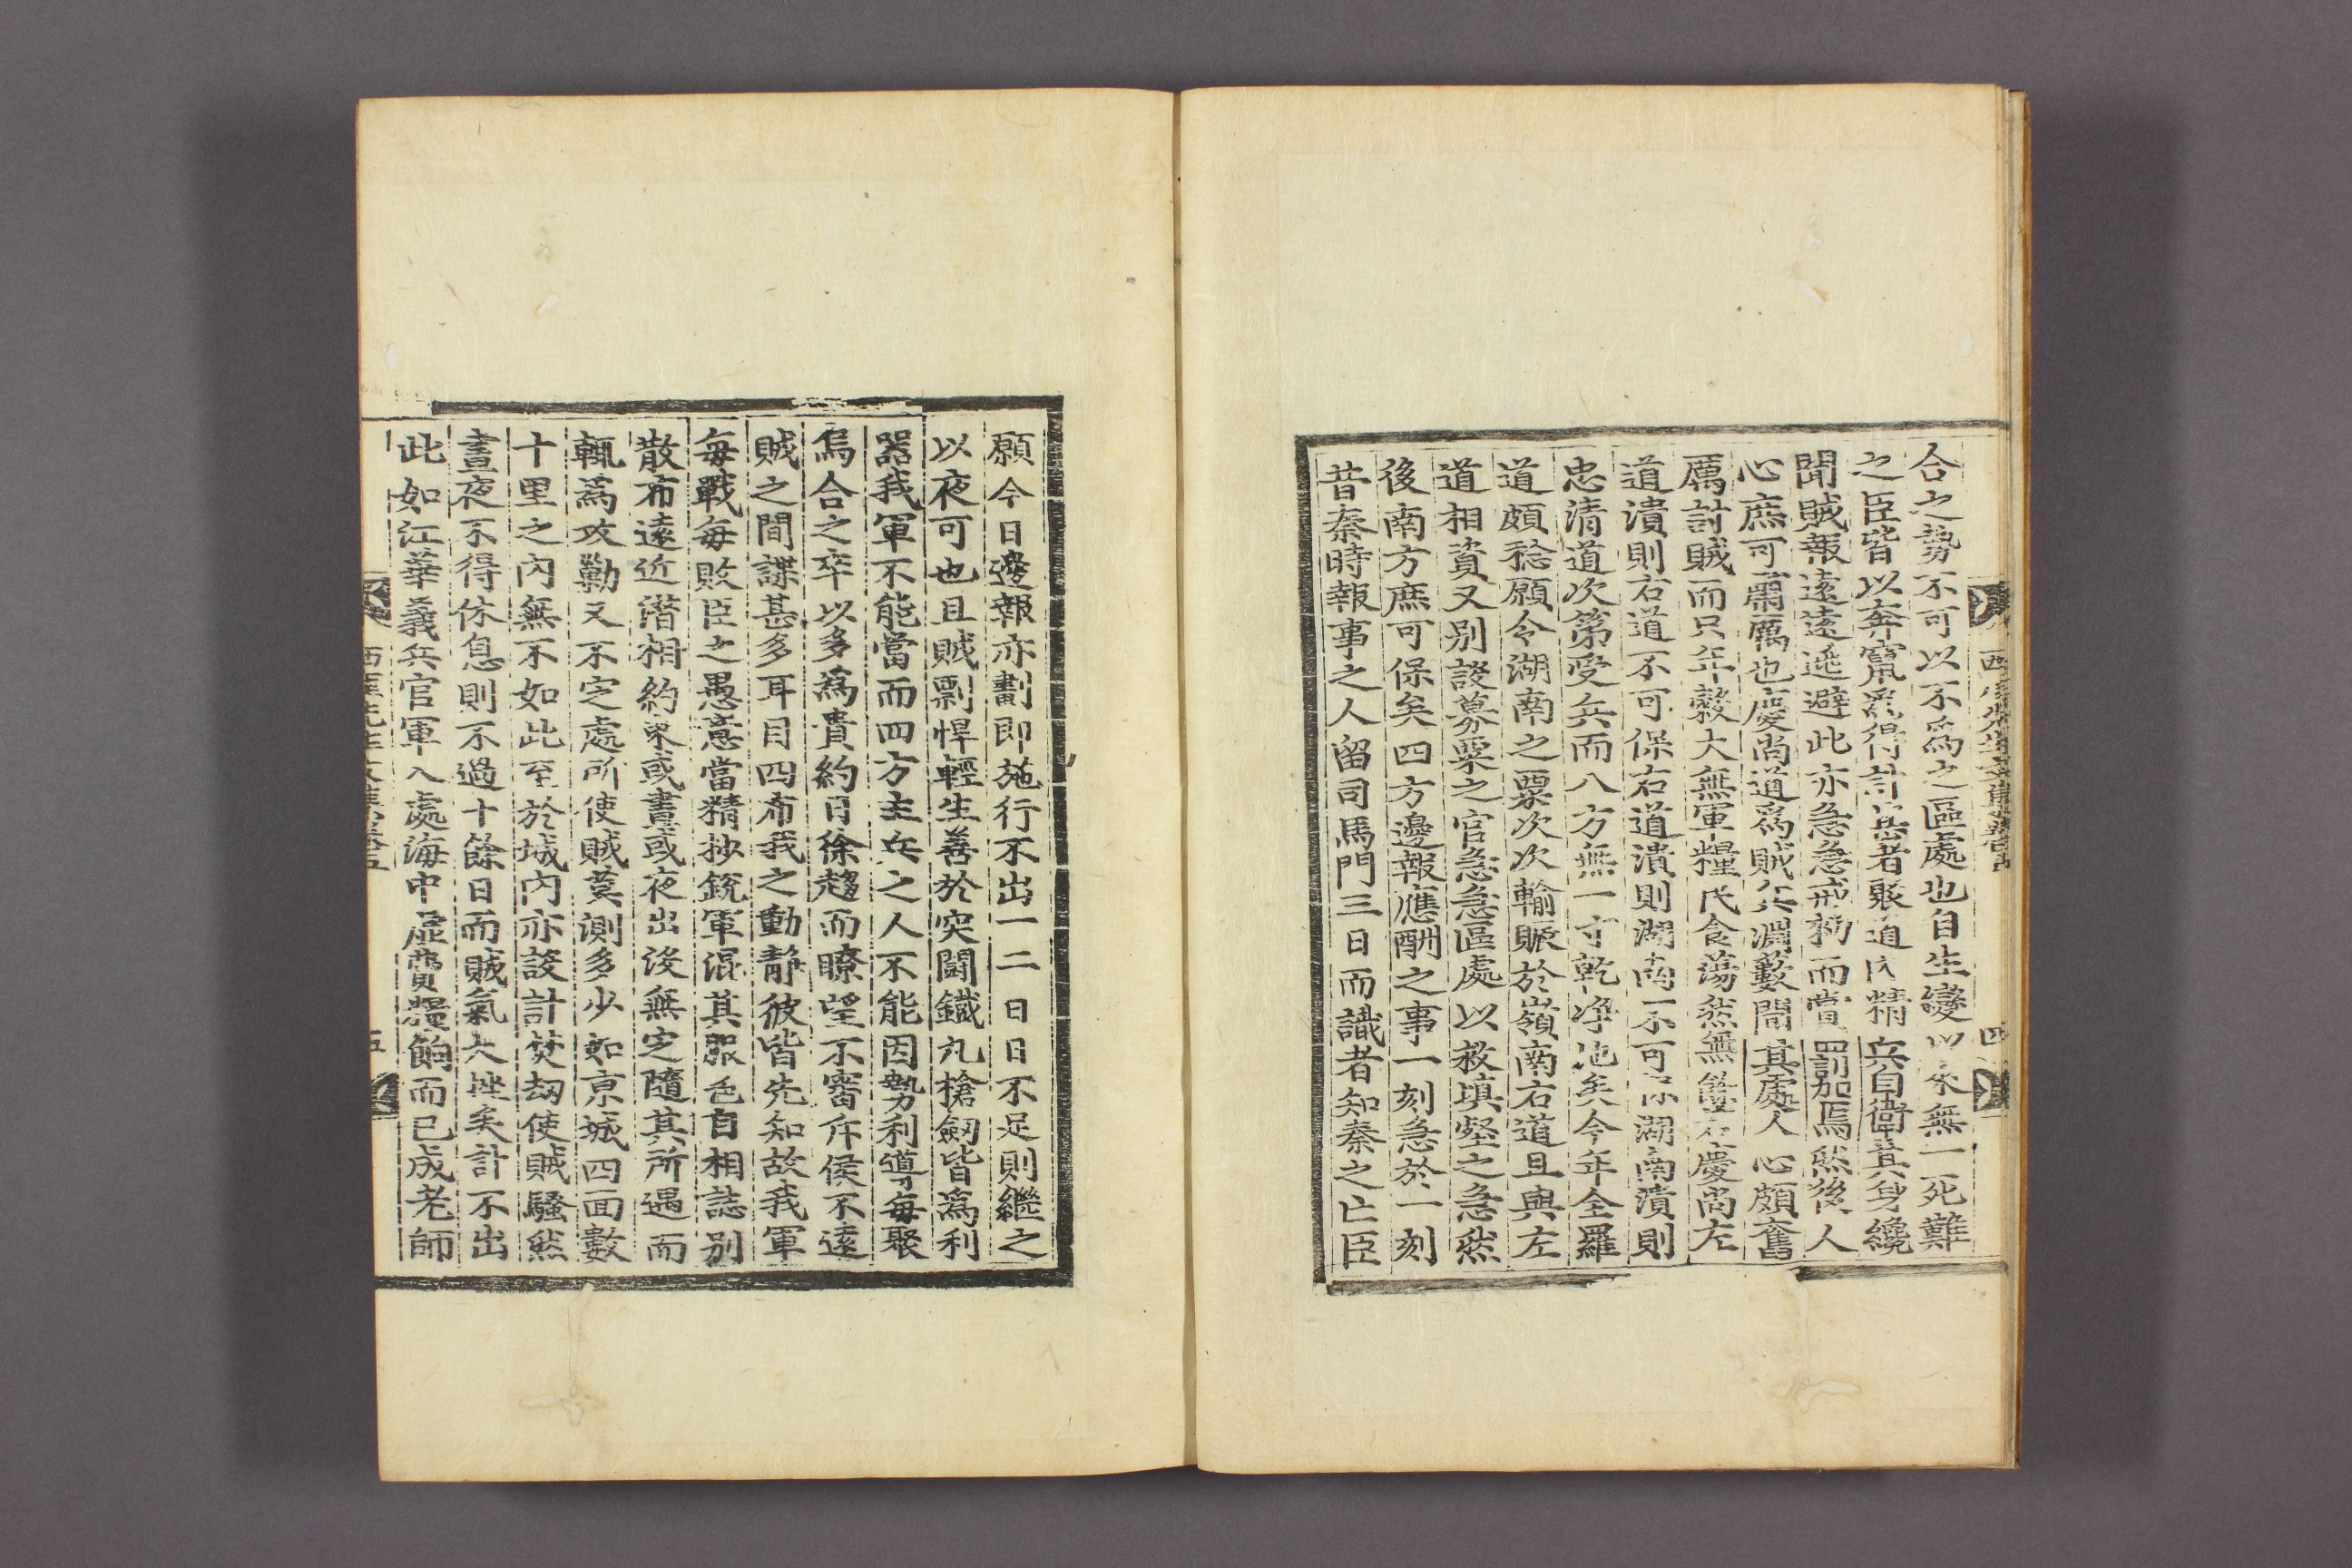 合之勢不可以不爲之區處也自生變以來無一死難
之臣皆以奔竄爲得計甚者聚道內精兵自衛其身纔
聞賊報遠遠遁避此亦急急戒勑而賞罰加焉然後人
心庶可肅厲也慶尙道爲賊兵淵藪間其處人心頗奮
厲討賊而只年穀大無軍糧民食蕩然無餘左慶尙左
道潰則右道不可保右道潰則湖南不可保湖南潰則
忠淸道次第受兵而八方無一寸乾淨地矣今年全羅
道頗稔願令湖南之粟次次輸賑於嶺南右道且與左
道相資又別發募粟之官急急區處以救塡壑之急然
後南方庶可保矣四方邊報應酬之事一刻急於一刻
昔秦時報事之人留司馬門三日而識者知秦之亡臣
四
願今日邊報亦劃卽施行不出一二日日不足則繼之
以夜可也且賊剽悍輕生善於突鬪鐵丸槍劒皆爲利
器我軍不能當而四方主兵之人不能因勢利導每聚
烏合之卒以多爲貴約日徐趨而瞭望不審斥候不遠
賊之間諜甚多耳目四布我之動靜彼皆先知故我軍
每戰每敗臣之愚意當精抄銳軍混其服色自相誌別
散布遠近潛相約束或晝或夜出沒無定隨其所遇而
輒爲攻勦又不定處所使賊莫測多少如京城四面數
十里之內無不如此至於城內亦設計焚刼使賊騷然
晝夜不得休息則不過十餘日而賊氣大挫矣計不出
此如江華義兵官軍入處海中虛費糧餉而已成老師
五